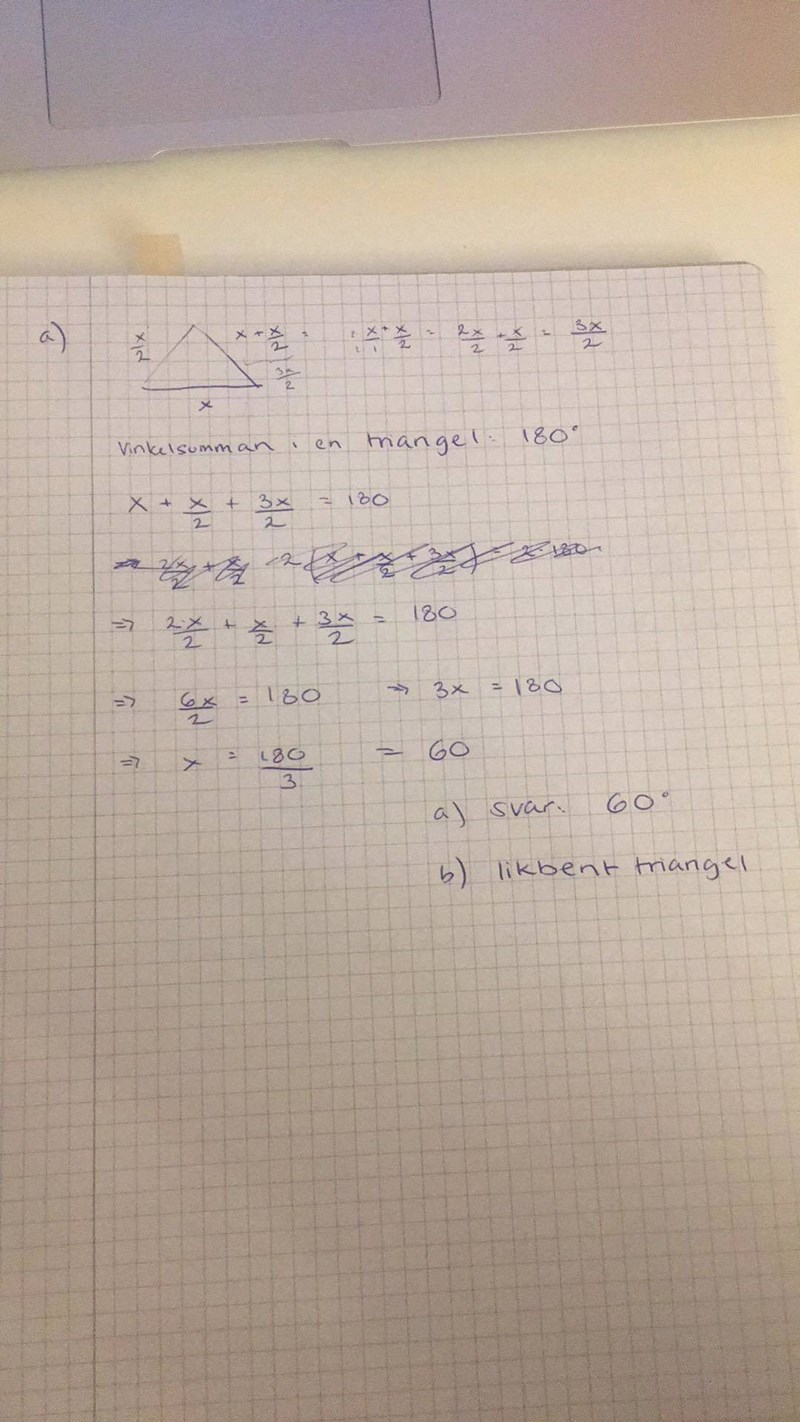 a) x/2 x + x/2 = x/1 + x/2 = 2x/2 + x/2 = 3x/2
3x/2
x
Vinkelsumman i en triangel: 180°
x + x/2 + 3x/2 = 180
=> 2·x/2 + x/2 + 3x/2 = 180
=> 6x/2 = 180 => 3x = 180
=> x = 180/3 = 60
a) svar: 60°
b) likbent triangel